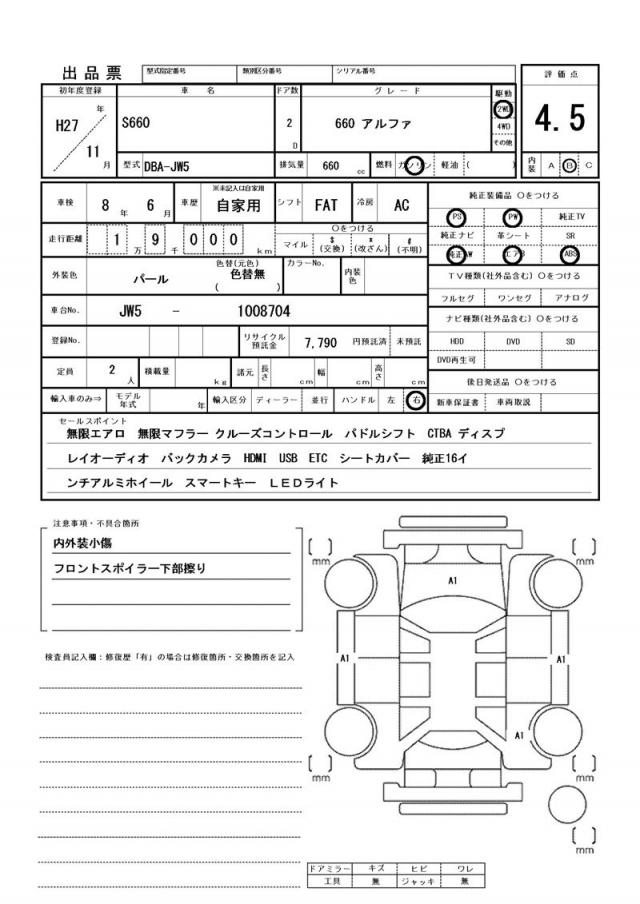 出品票 型式指定番号 類別区分番号 シリアル番号 評価点
初年度登録 車名 ドア数 グレード 駆動
H27 年 S660 2 D 660 アルファ 2WD 4.5
11 月 4WD
その他
型式 DBA-JW5 排気量 660 cc 燃料 ガソリン 軽油 ( ) 内装 A B C
車検 8 年 6 月 車歴 ※未記入は自家用 自家用 シフト FAT 冷房 AC 純正装備品 ○をつける
PS PW 純正TV
走行距離 1 万 9 千 0 0 0 km ○をつける
マイル $ (交換) x (改ざん) # (不明) 純正ナビ 革シート SR
純正AW エアB ABS
外装色 パール 色替(元色) 色替無 ( ) カラーNo. 内装色 TV種類(社外品含む) ○をつける
フルセグ ワンセグ アナログ
車台No. JW5 - 1008704 ナビ種類(社外品含む) ○をつける
登録No. リサイクル預託金 7,790 円預託済 未預託 HDD DVD SD
DVD再生可
定員 2 人 積載量 kg 諸元 長さ cm 幅 cm 高さ cm 後日発送品 ○をつける
輸入車のみ⇒ モデル年式 年 輸入区分 ディーラー 並行 ハンドル 左 右 新車保証書 車両取説
セールスポイント
無限エアロ 無限マフラー クルーズコントロール パドルシフト CTBA ディスプ
レイオーディオ バックカメラ HDMI USB ETC シートカバー 純正16イ
ンチアルミホイール スマートキー LEDライト
注意事項・不具合箇所
内外装小傷
フロントスポイラー下部擦り
検査員記入欄：修復歴「有」の場合は修復箇所・交換箇所を記入
[ ] mm [ ] mm
A1
A1 A1
A1
[ ] mm [ ] mm
[ ] mm
ドアミラー キズ ヒビ ワレ
工具 無 ジャッキ 無